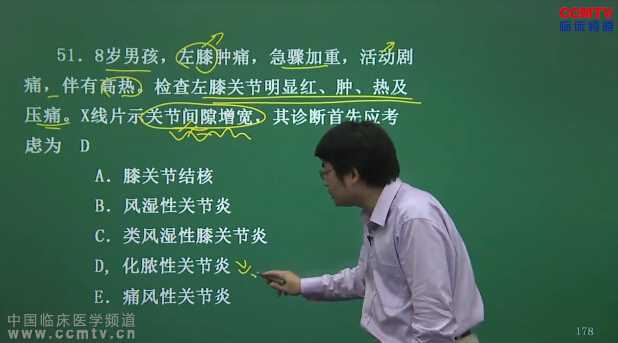 CCMTV
临床频道
51．8岁男孩，左膝肿痛，急骤加重，活动剧
痛，伴有高热。检查左膝关节明显红、肿、热及
压痛。X线片示关节间隙增宽，其诊断首先应考
虑为 D
A．膝关节结核
B．风湿性关节炎
C．类风湿性膝关节炎
D，化脓性关节炎
E．痛风性关节炎
中国临床医学频道
www.ccmtv.cn
178